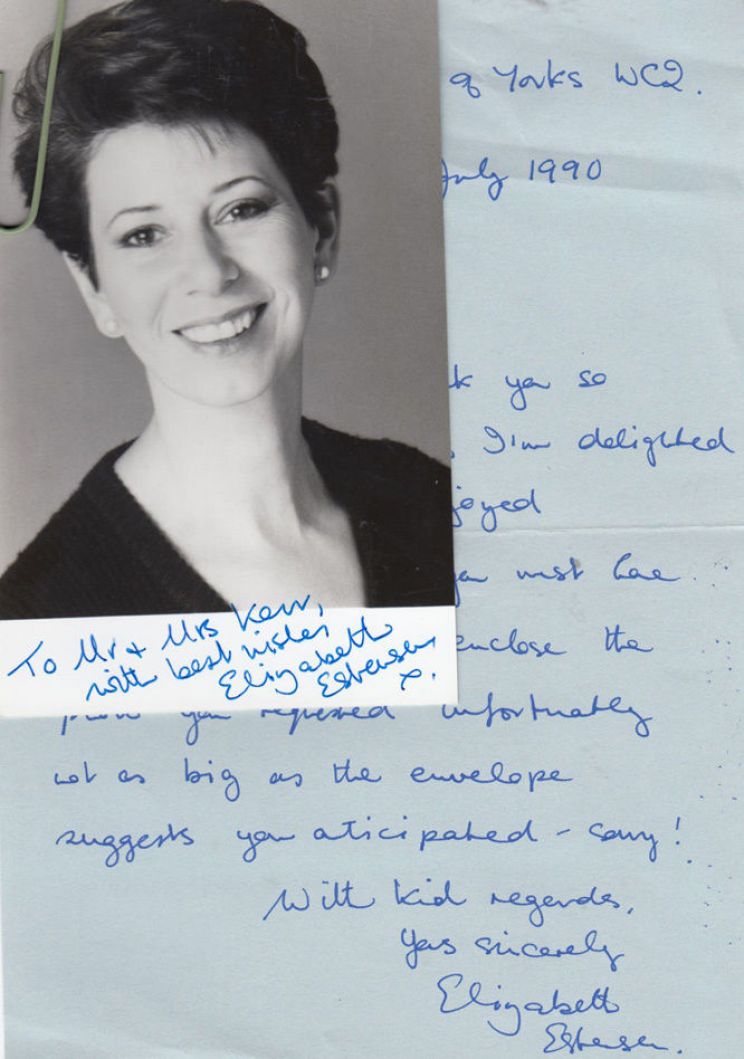 of Yorks WC2.
July 1990
k you so
. I'm delighted
joyed
you must have
enclose the
photo you requested unfortunatly
not as big as the envelope
suggests you aticipated - sorry!
With kid regards,
Yours sincerely
Elizabeth
Estensen.
To Mr + Mrs Kerr,
with best wishes
Elizabeth
Estensen
x.